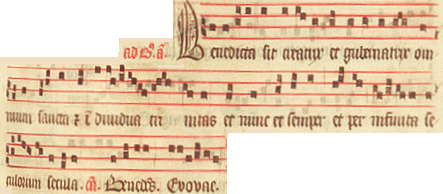 ad B. a. Benedicta sit creatrix et gubernatrix om
nium sancta et in dividua tri nitas et nunc et semper et per infinita se
culorum secula. Bened. Evovae.